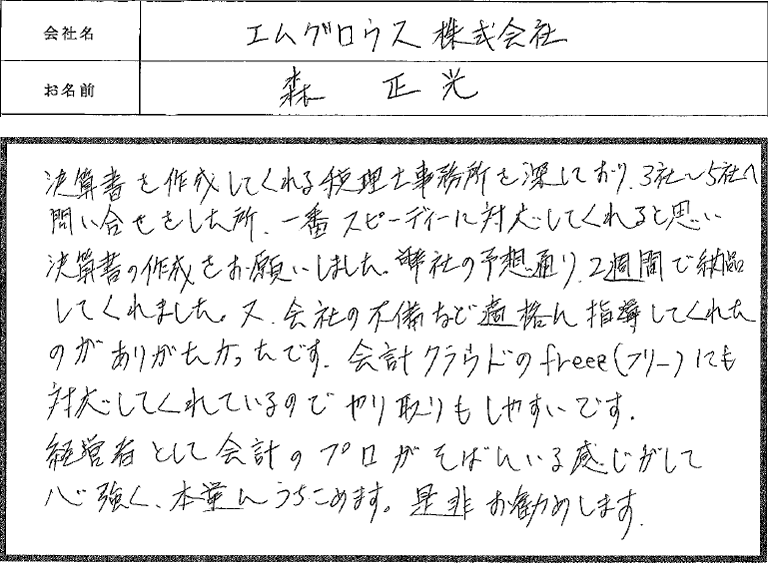 会社名 エムグロウス株式会社
お名前 森 正光
決算書を作成してくれる税理士事務所を探しており、3社〜5社へ
問い合せをした所、一番スピーディーに対応してくれると思い
決算書の作成をお願いしました。弊社の予想通り、2週間で納品
してくれました。又、会社の不備など適格に指導してくれた
のがありがたかったです。会計クラウドのfreee(フリー)にも
対応してくれているのでやり取りもしやすいです。
経営者として会計のプロがそばにいる感じがして
心強く、本業にうちこめます。是非お勧めします。